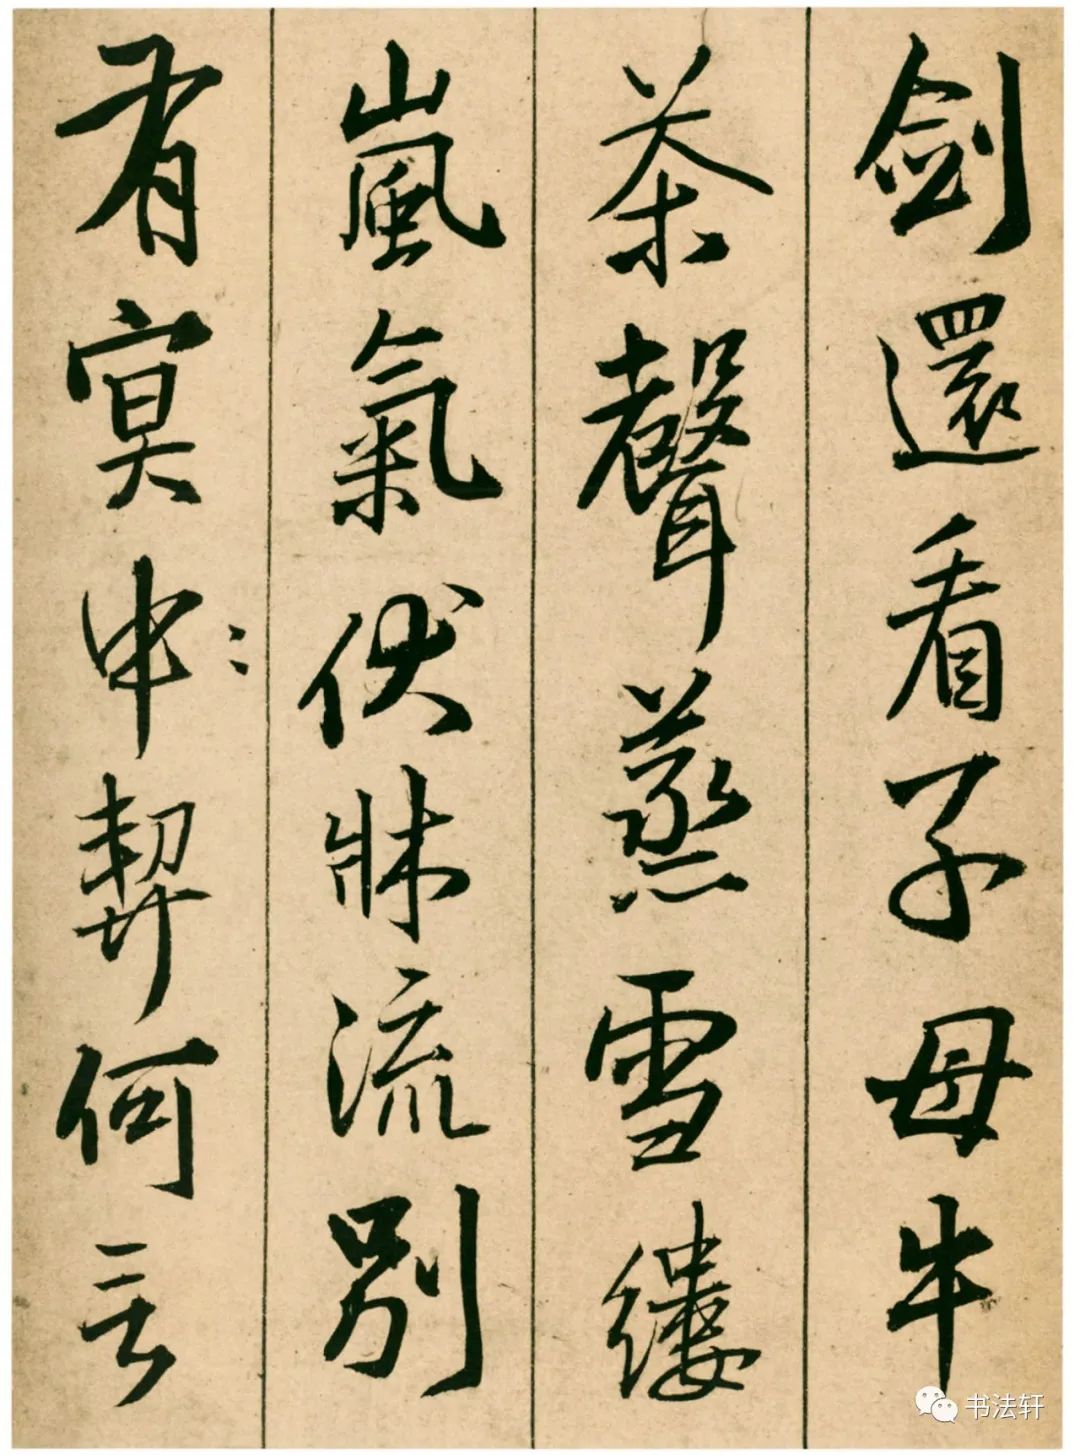 劍還看子母牛
茶聲蒸雪縷
嵐氣伏牀流別
有冥申契何言
书法轩